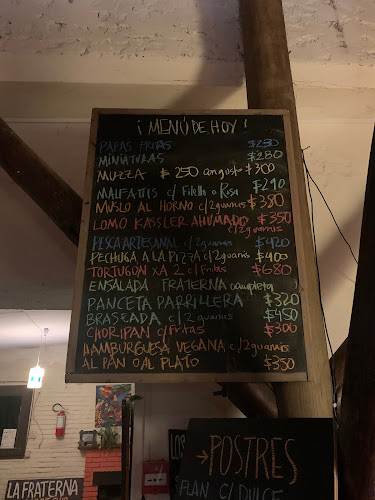 ¡MENÚ DE HOY!
PAPAS FRITAS $250
MINIATURAS $280
MUZZA $250 con gusto $300
MALFATTIS c/ Filetto o Rosa $290
MUSLO AL HORNO c/2 guarnis $380
LOMO KASSLER AHUMADO c/2 guarnis $350
PESCA ARTESANAL c/2 guarnis $420
PECHUGA A LA PIZZA c/2 guarnis $400
TORTUGON XA 2 c/ fritas $680
ENSALADA FRATERNA completa
PANCETA PARRILLERA $320
BRASEADA c/2 guarnis $450
CHORIPAN c/fritas $300
HAMBURGUESA VEGANA c/2 guarnis
AL PAN O AL PLATO $350
→POSTRES
FLAN C/DULCE
LOS
LA FRATERNA